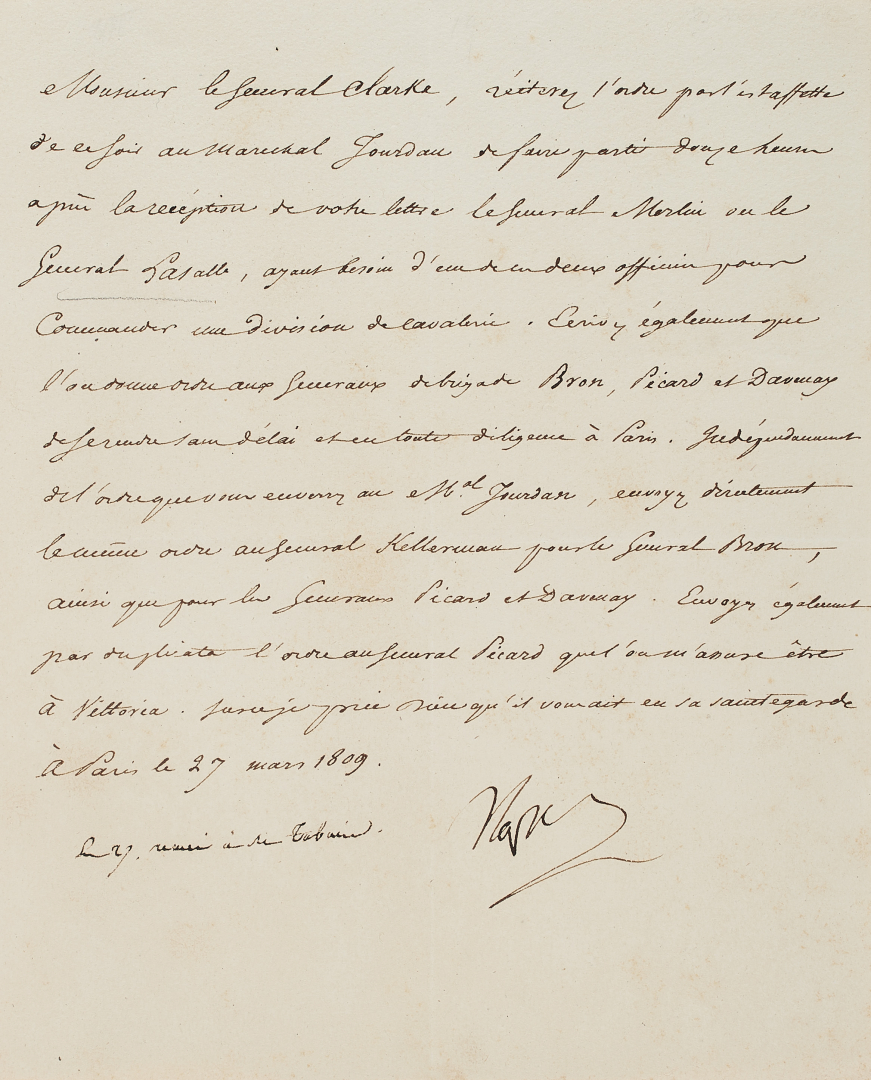 Monsieur le General Clarke, réiterez l'ordre par l'estaffette
de ce soir au Marechal Jourdan de faire partir douze heures
après la recéption de votre lettre le General Merlin ou le
General Lasalle, ayant besoin d'un de ces deux officiers pour
Commander une division de cavalerie. Ecrivez également que
l'on donne ordre aux Generaux de brigade Bron, Picard et Davenay
de se rendre sans délai et en toute diligence à Paris. Indépendamment
de l'ordre que vous enverrez au M.al Jourdan, envoyez directement
le même ordre au General Kellerman pour le General Bron,
ainsi que pour les Generaux Picard et Davenay. Envoyez également
par duplicata l'ordre au General Picard que l'on m'assure être
à Vittoria. Sur ce je prie Dieu qu'il vous ait en sa sainte garde
à Paris le 27 mars 1809.
Nap
Le 27. à